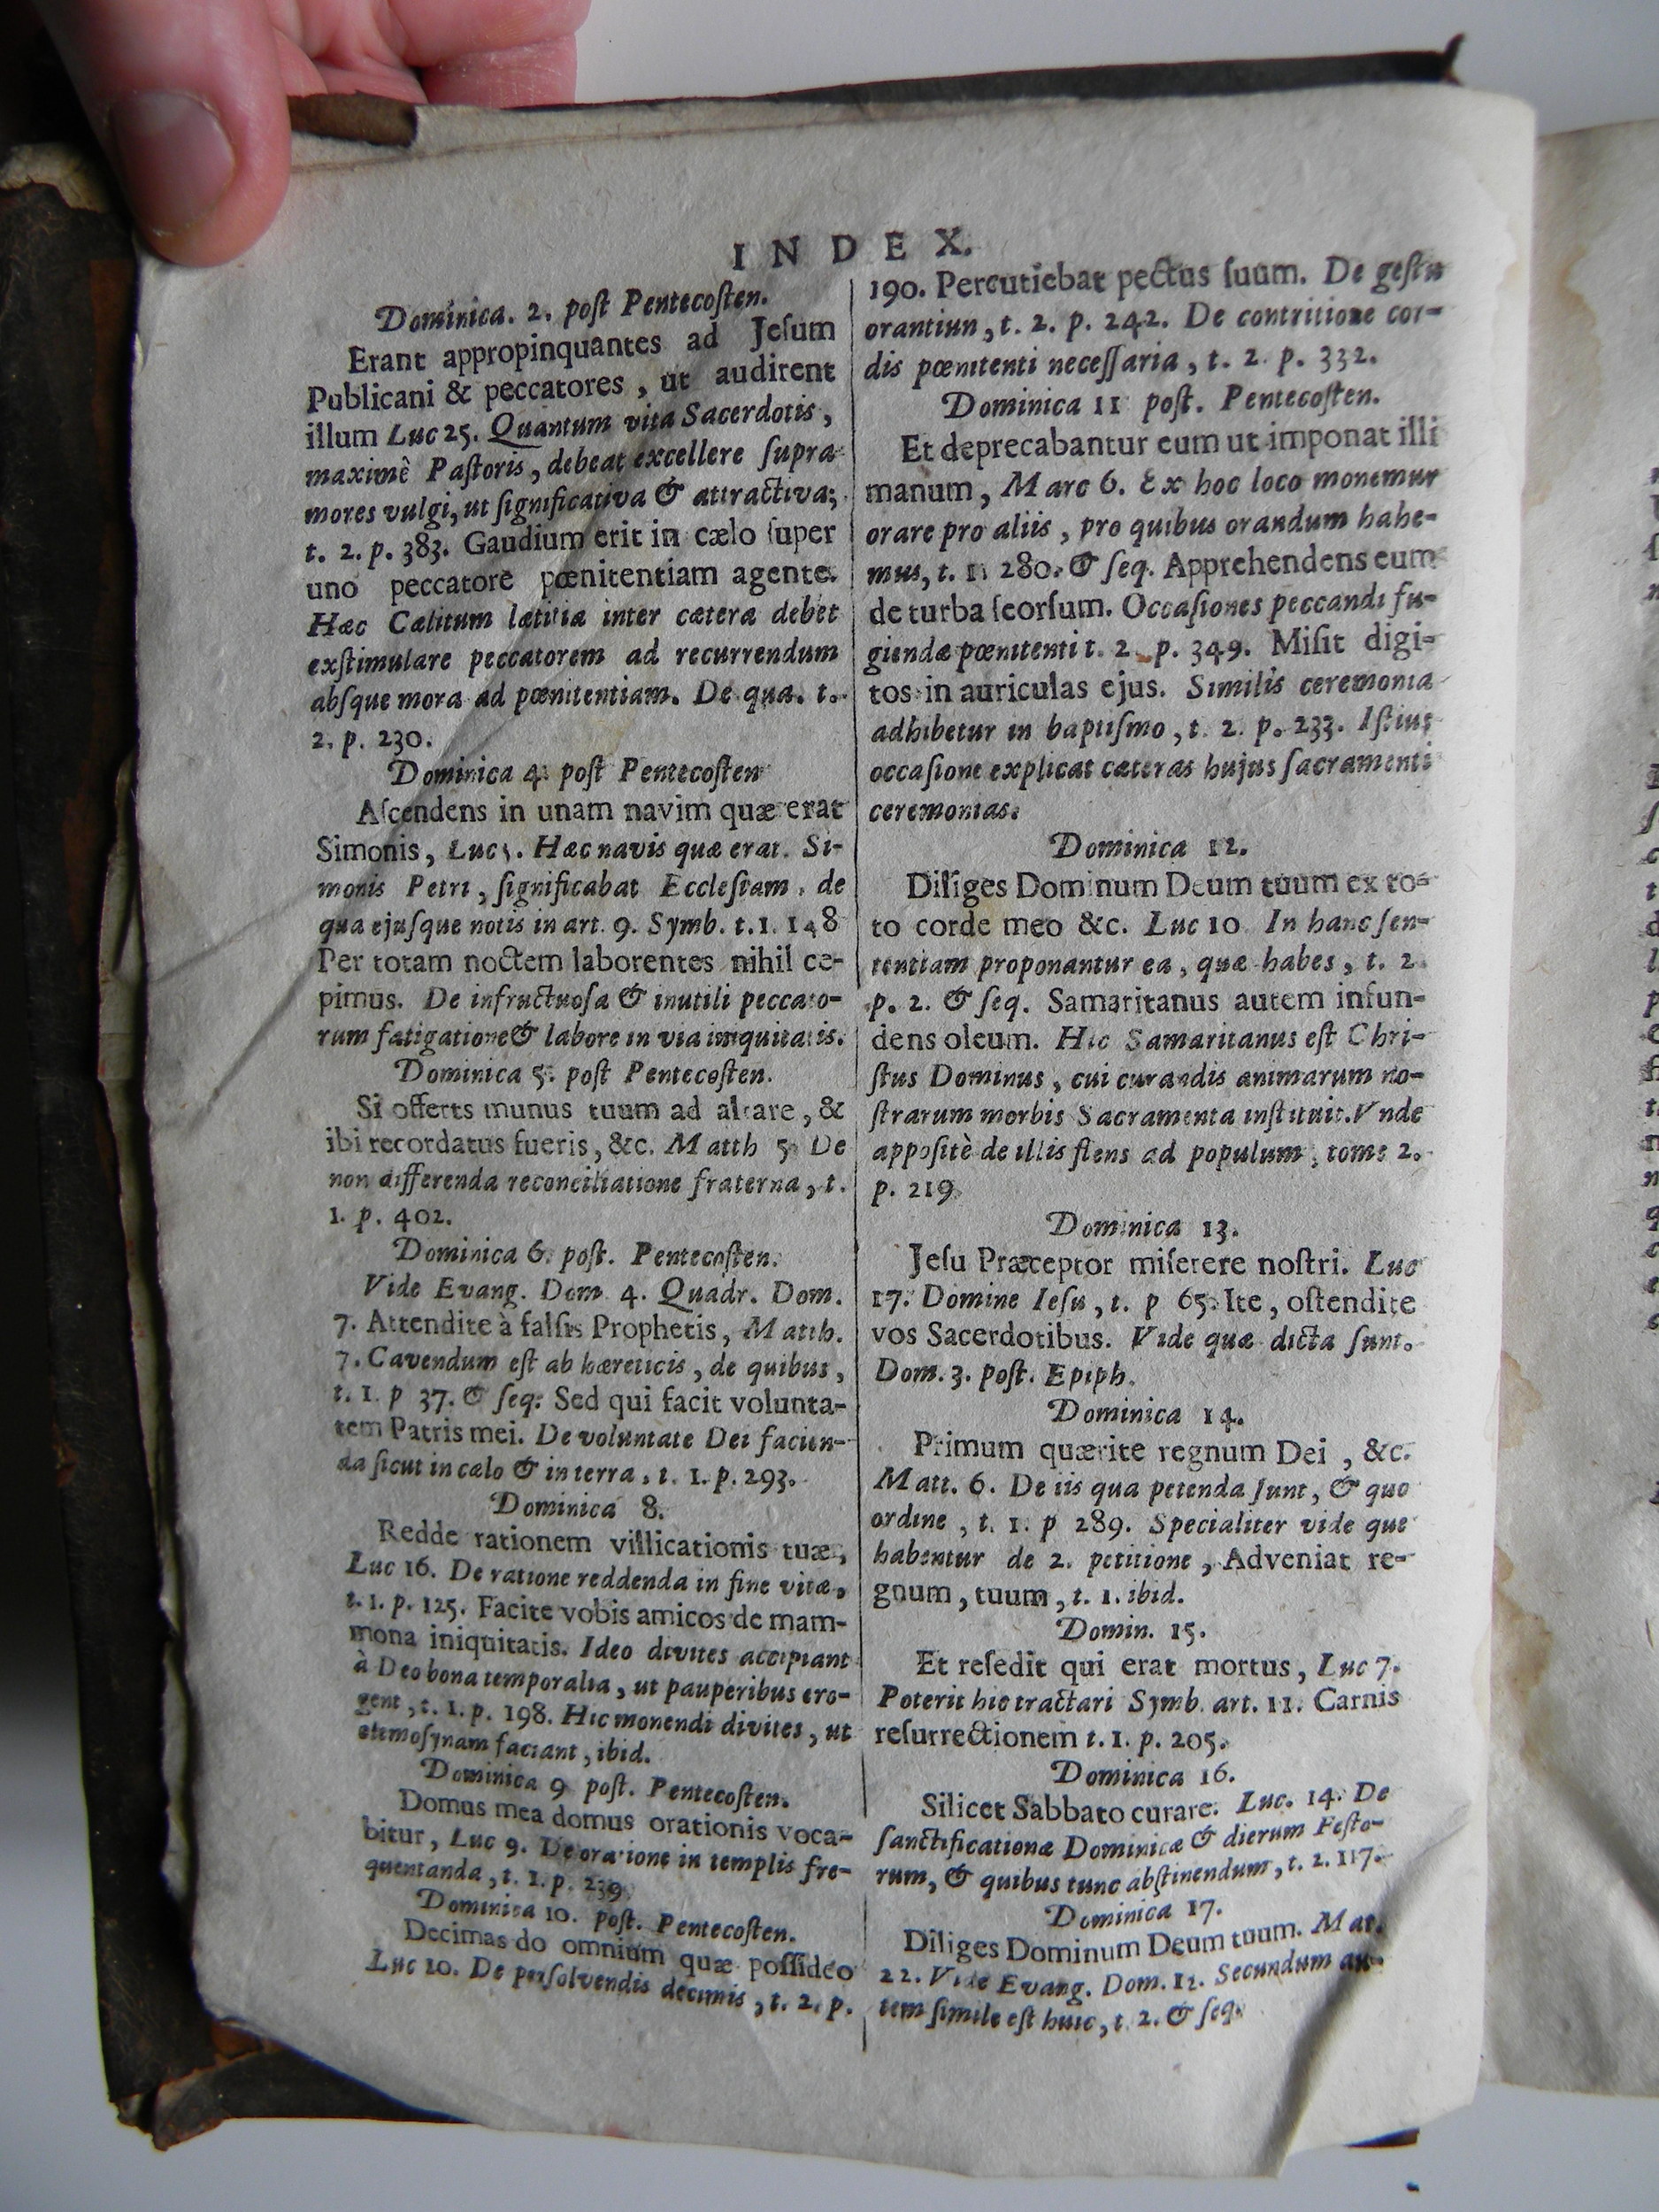 INDEX.
Dominica. 2. poſt Pentecoſten.
Erant appropinquantes ad Jeſum
Publicani & peccatores, ut audirent
illum Luc 25. Quantum vita Sacerdotis,
maximè Paſtoris, debeat excellere ſupra
mores vulgi, ut ſignificativa & attractiva;
t. 2. p. 383. Gaudium erit in cælo ſuper
uno peccatore pœnitentiam agente.
Hæc Cælitum lætitia inter cætera debet
exſtimulare peccatorem ad recurrendum
abſque mora ad pœnitentiam. De qua. t.
2. p. 230.
Dominica 4. poſt Pentecoſten
Aſcendens in unam navim quæ erat
Simonis, Luc 5. Hæc navis quæ erat. Si-
monis Petri, ſignificabat Eccleſiam, de
qua ejuſque notis in art. 9. Symb. t. 1. 148
Per totam noctem laborentes nihil ce-
pimus. De infructuoſa & inutili peccato-
rum fatigatione & labore in via iniquitatis.
Dominica 5. poſt Pentecoſten.
Si offerts munus tuum ad altare, &
ibi recordatus fueris, &c. Matth 5. De
non differenda reconciliatione fraterna, t.
1. p. 402.
Dominica 6. poſt. Pentecoſten.
Vide Evang. Dom 4. Quadr. Dom.
7. Attendite à falſis Prophetis, Matth.
7. Cavendum eſt ab hæreticis, de quibus,
t. 1. p 37. & ſeq. Sed qui facit volunta-
tem Patris mei. De voluntate Dei facien-
da ſicut in cælo & in terra, t. 1. p. 293.
Dominica 8.
Redde rationem villicationis tuæ,
Luc 16. De ratione reddenda in fine vitæ,
t. 1. p. 125. Facite vobis amicos de mam-
mona iniquitatis. Ideo divites accipiant
à Deo bona temporalia, ut pauperibus ero-
gent, t. 1. p. 198. Hic monendi divites, ut
elemoſynam faciant, ibid.
Dominica 9 poſt. Pentecoſten.
Domus mea domus orationis voca-
bitur, Luc 9. De oratione in templis fre-
quentanda, t. 1. p. 239.
Dominica 10. poſt. Pentecoſten.
Decimas do omnium quæ poſſideo
Luc 10. De perſolvendis decimis, t. 2. p.
190. Percutiebat pectus ſuum. De geſtu
orantiun, t. 2. p. 242. De contritione cor-
dis pœnitenti neceſſaria, t. 2 p. 332.
Dominica 11 poſt. Pentecoſten.
Et deprecabantur eum ut imponat illi
manum, Marc 6. Ex hoc loco monemur
orare pro aliis, pro quibus orandum habe-
mus, t. 1. 280. & ſeq. Apprehendens eum
de turba ſeorſum. Occaſiones peccandi fu-
giendæ pœnitenti t. 2. p. 349. Miſit digi-
tos in auriculas ejus. Similis ceremonia
adhibetur in baptiſmo, t. 2. p. 233. Iſtius
occaſione explicat cæteras hujus ſacramenti
ceremonias.
Dominica 12.
Diliges Dominum Deum tuum ex to-
to corde meo &c. Luc 10 In hanc ſen-
tentiam proponantur ea, quæ habes, t. 2.
p. 2. & ſeq. Samaritanus autem infun-
dens oleum. Hic Samaritanus eſt Chri-
ſtus Dominus, cui curandis animarum no-
ſtrarum morbis Sacramenta inſtituit. Vnde
appoſitè de illis flens ad populum, tome 2.
p. 219
Dominica 13.
Jeſu Præceptor miſerere noſtri. Luc
17. Domine Ieſu, t. p 65. Ite, oſtendite
vos Sacerdotibus. Vide quæ dicta ſunt.
Dom. 3. poſt. Epiph.
Dominica 14.
Primum quærite regnum Dei, &c.
Matt. 6. De iis qua petenda ſunt, & quo
ordine, t. 1. p 289. Specialiter vide que
habentur de 2. petitione, Adveniat re-
gnum, tuum, t. 1. ibid.
Domin. 15.
Et reſedit qui erat mortus, Luc 7.
Poterit hic tractari Symb. art. 11. Carnis
reſurrectionem t. 1. p. 205.
Dominica 16.
Silicet Sabbato curare. Luc. 14. De
ſanctificationæ Dominicæ & dierum Feſto-
rum, & quibus tunc abſtinendum, t. 2. 117.
Dominica 17.
Diliges Dominum Deum tuum. Mat.
22. Vide Evang. Dom. 12. Secundum au-
tem ſimile eſt huic, t. 2. & ſeq.